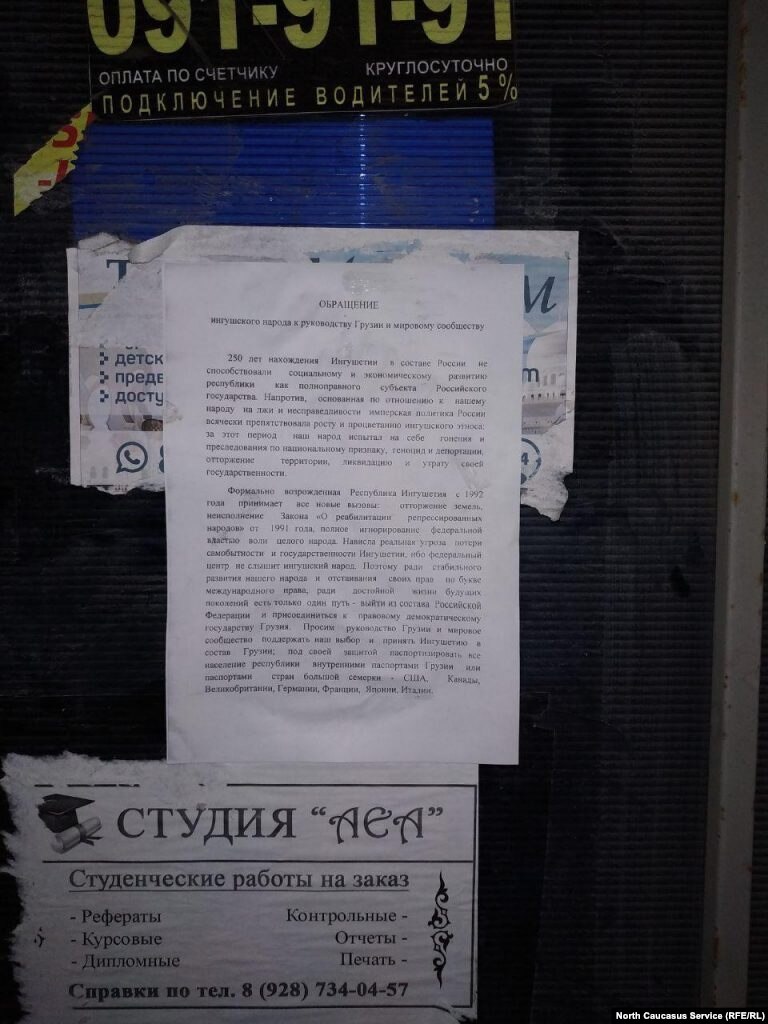 091-91-91
ОПЛАТА ПО СЧЕТЧИКУ КРУГЛОСУТОЧНО
ПОДКЛЮЧЕНИЕ ВОДИТЕЛЕЙ 5 %
детск
предв
досту
ОБРАЩЕНИЕ
ингушского народа к руководству Грузии и мировому сообществу
250 лет нахождения Ингушетии в составе России не
способствовали социальному и экономическому развитию
республики как полноправного субъекта Российского
государства. Напротив, основанная по отношению к нашему
народу на лжи и несправедливости имперская политика России
всячески препятствовала росту и процветанию ингушского этноса:
за этот период наш народ испытал на себе гонения и
преследования по национальному признаку, геноцид и депортации,
отторжение территории, ликвидацию и утрату своей
государственности.
Формально возрожденная Республика Ингушетия с 1992
года принимает все новые вызовы: отторжение земель,
неисполнение Закона «О реабилитации репрессированных
народов» от 1991 года, полное игнорирование федеральной
властью воли целого народа. Нависла реальная угроза потери
самобытности и государственности Ингушетии, ибо федеральный
центр не слышит ингушский народ. Поэтому ради стабильного
развития нашего народа и отстаивания своих прав по букве
международного права, ради достойной жизни будущих
поколений есть только один путь - выйти из состава Российской
Федерации и присоединиться к правовому демократическому
государству Грузия. Просим руководство Грузии и мировое
сообщество поддержать наш выбор и принять Ингушетию в
состав Грузии; под своей защитой паспортизировать все
население республики внутренними паспортами Грузии или
паспортами стран большой семерки - США, Канады,
Великобритании, Германии, Франции, Японии, Италии.
СТУДИЯ "АЕА"
Студенческие работы на заказ
- Рефераты Контрольные -
- Курсовые Отчеты -
- Дипломные Печать -
Справки по тел. 8 (928) 734-04-57
North Caucasus Service (RFE/RL)